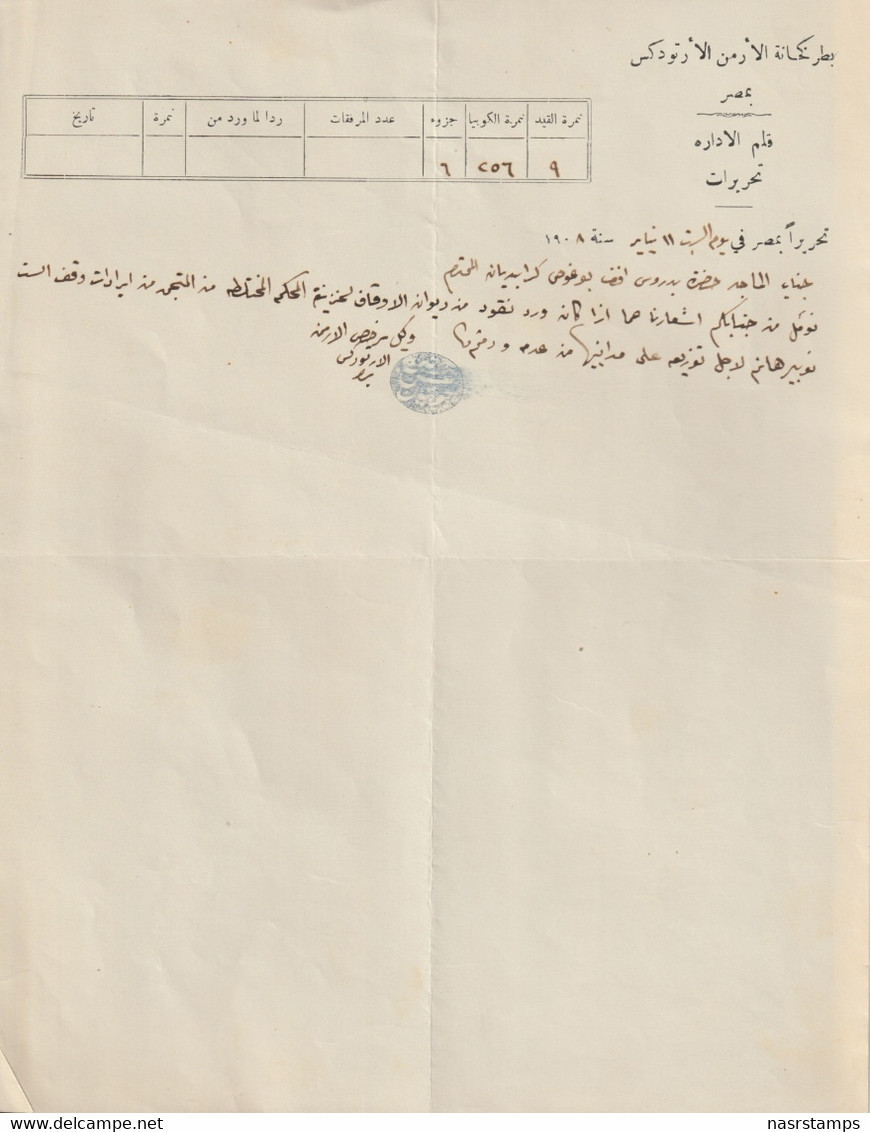 بطركخانة الأرمن الأرتودكس
بمصر
قلم الاداره
تحريرات
نمرة القيد نمرة الكوبيا جزوء عدد المرفقات ردا لما ورد من نمرة تاريخ
٩ ٢٥٦ ٦
تحريراً بمصر في يوم السبت ١١ يناير سنة ١٩٠٨
جناب الماجد حضرة بدروس افندي بوغوص كرابديان المحترم
نؤمل من جنابكم اشعارنا عما اذا كان ورد نقود من ديوان الاوقاف لخزينة المحكمه المختلطه من المتجمد من ايرادات وقف الست
نوبير هانم لاجل توزيعه على مداينيها من عدمه ودمتم
وكيل مرخص الارمن
الارتودكس
بمصر
nasrstamps